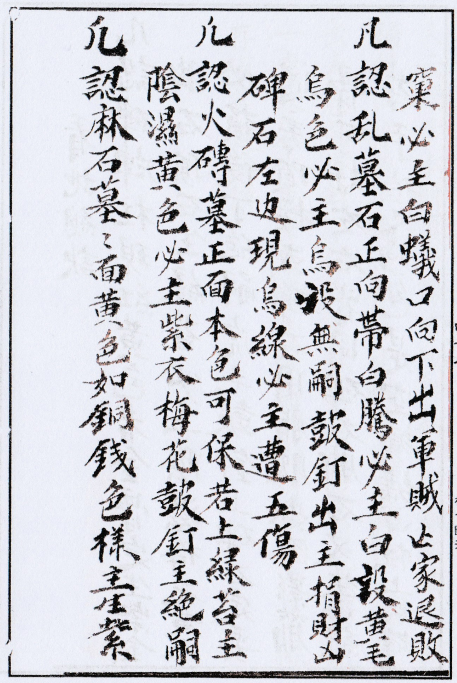 窠必主白蟻口向下出軍賊亡家退敗
凡認乱墓石正向帶白騰必主白設黃毛
烏色必主烏設無嗣鼓釘出主損財凶
碑石左边現烏線必主遭五傷
凡認火磚墓正面本色可保若上緑苔主
陰濕黃色必主紫衣梅花鼓釘主絶嗣
凡認麻石墓〻面黃色如銅錢色樣主生紫